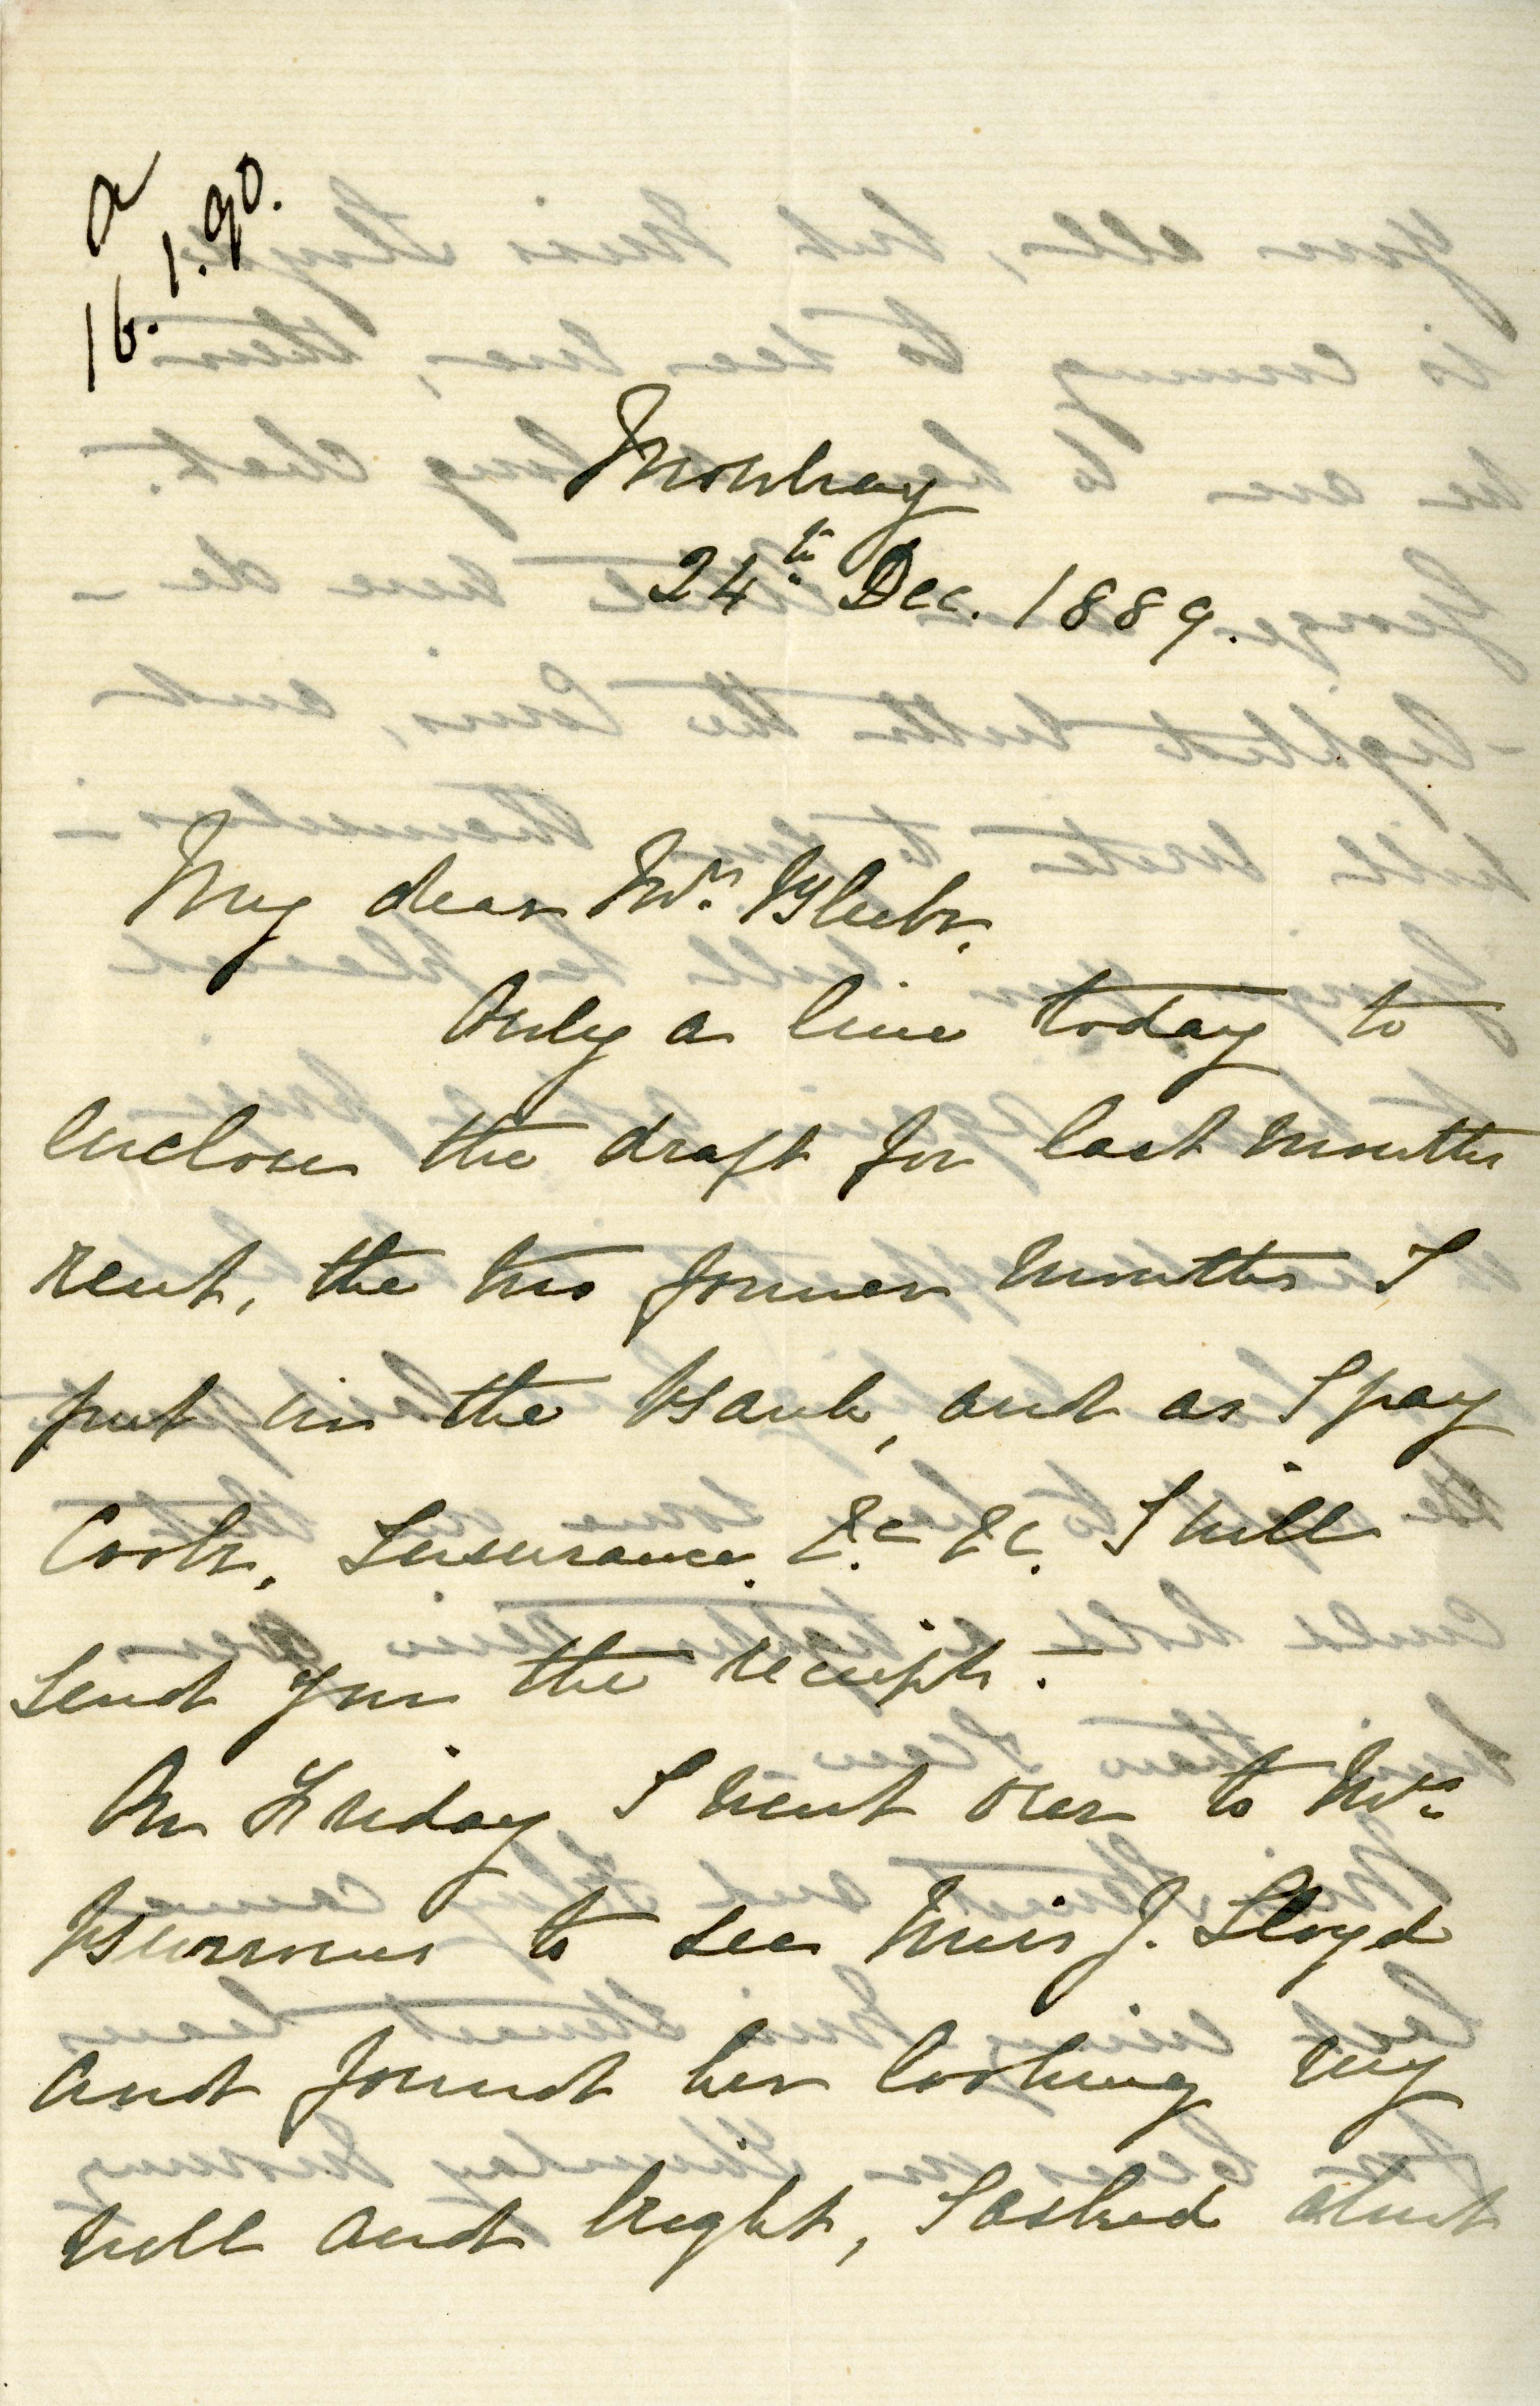 a
16.1.90.
Mowbray
24th Dec. 1889.
My dear Mr. Bleek,
Only a line today to
enclose the draft for last months
rent, the two former months I
put in the Bank, and as I pay
Cook, Insurance &c &c. I will
send you the receipts. -
On Friday I went over to Mrs
Burrows to see Miss J. Lloyd
and found her looking very
well and bright, I asked about